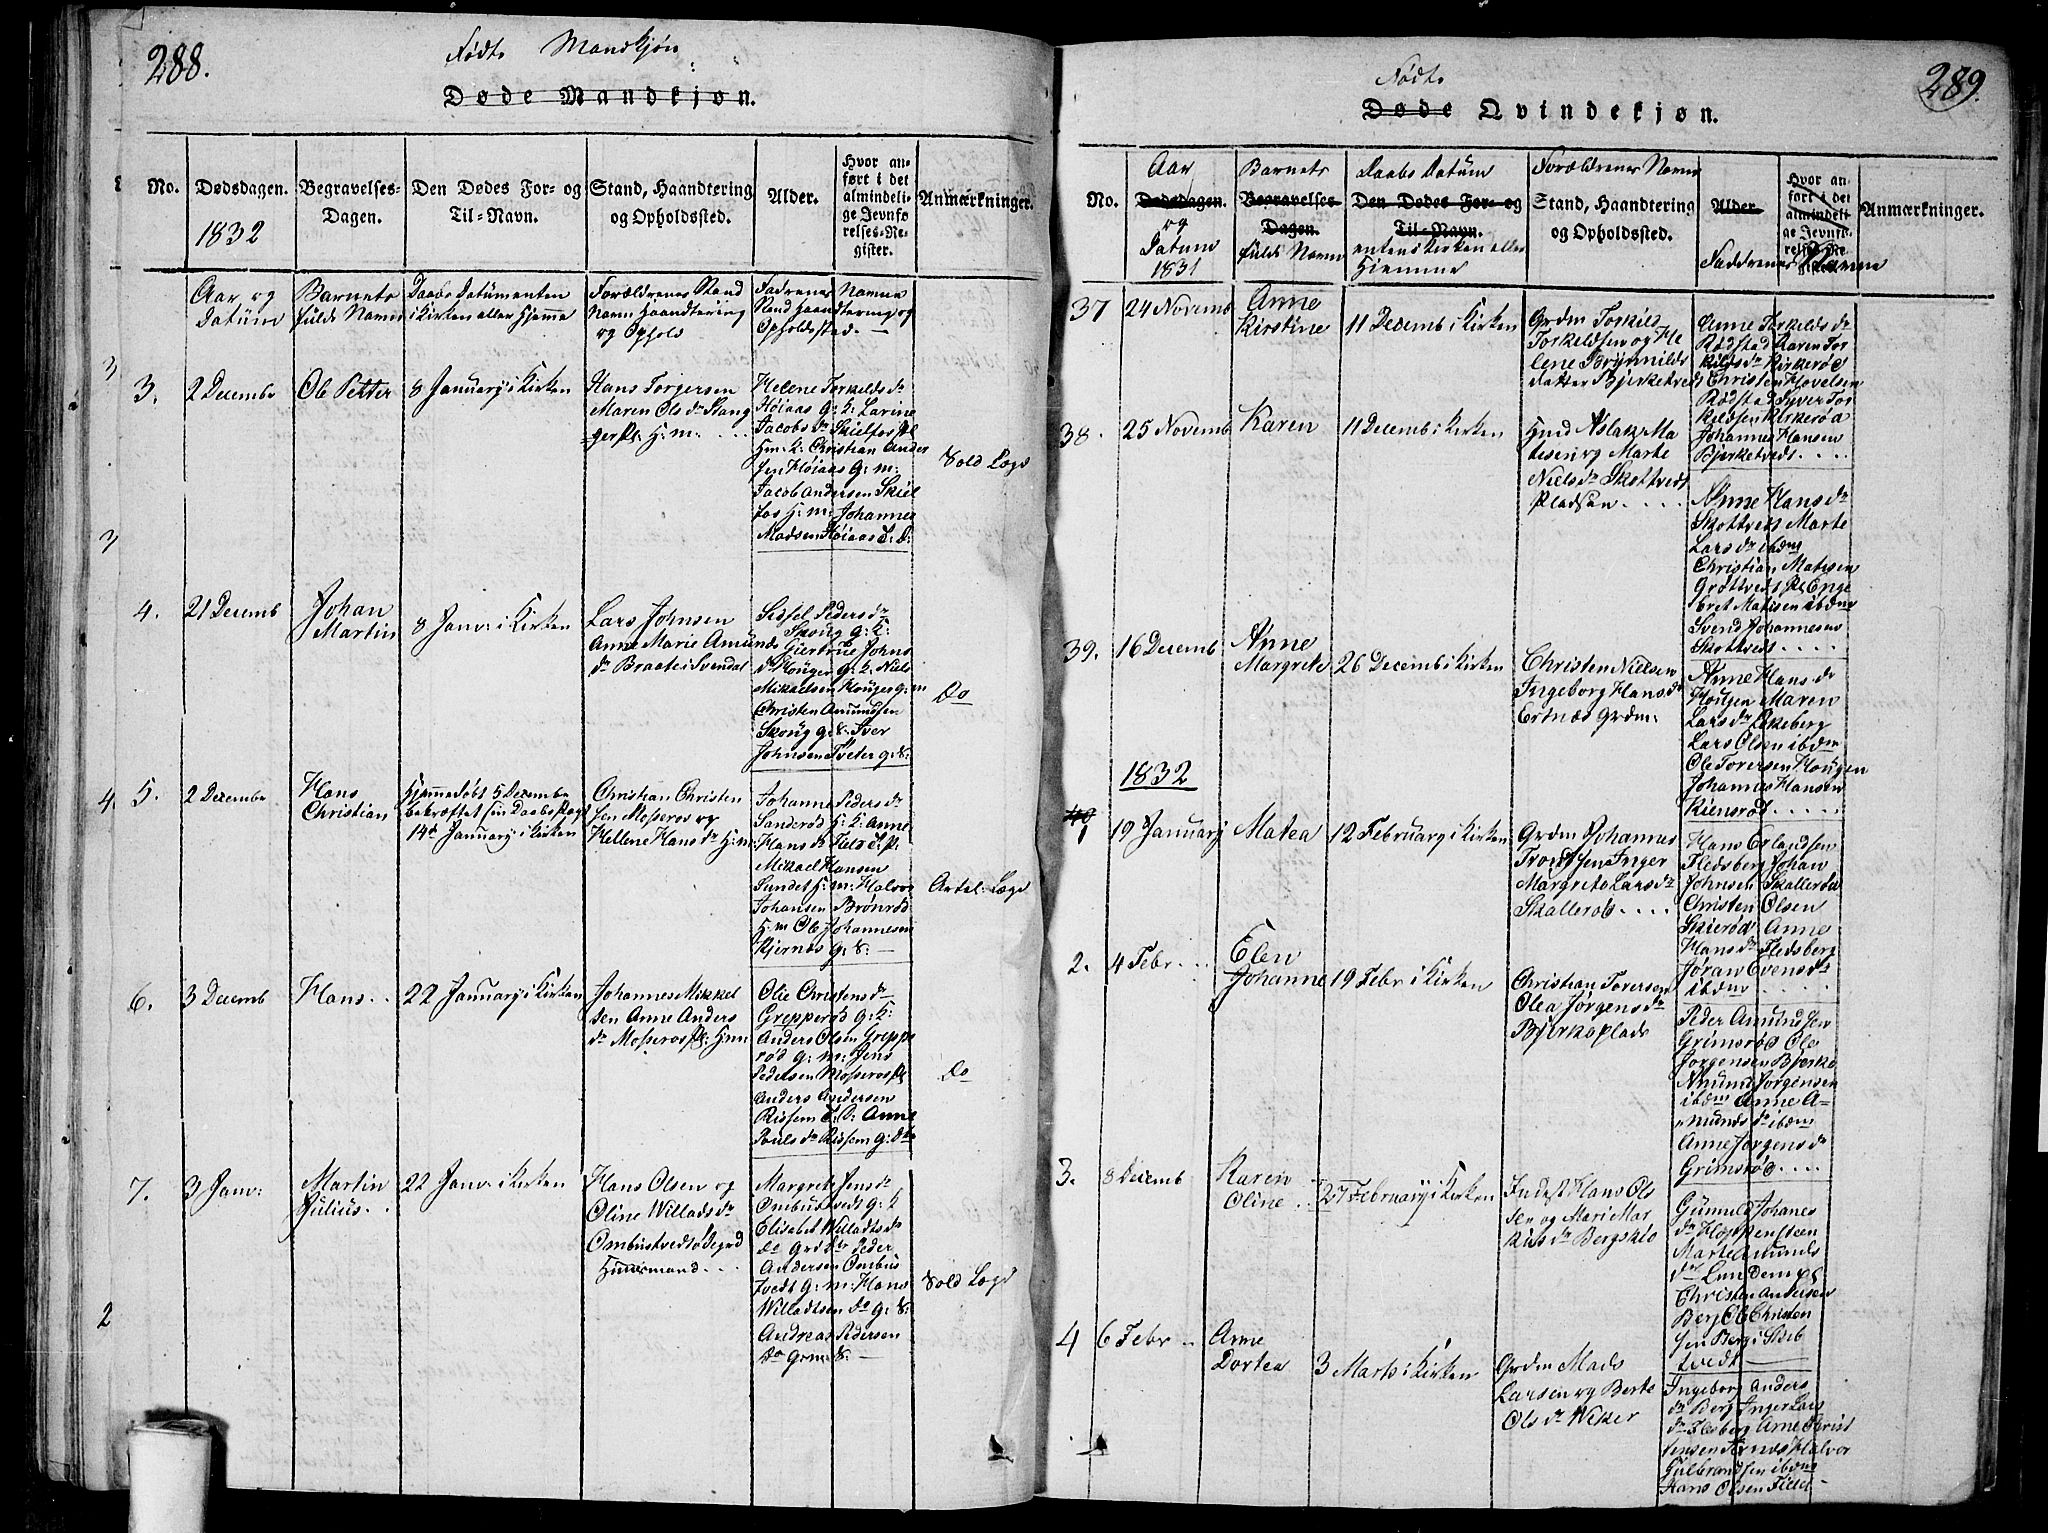 288.
Fødte Mandkjøn
Døde Mandkjøn.
No.
Dødsdagen.
1832
Begravelses-
Dagen.
Den Dødes For- og
Til-Navn.
Stand, Haandtering
og Opholdssted.
Alder.
Hvor an-
ført i det
almindeli-
ge Jevnfø
relses-Re-
gister.
Anmærkninger.
Aar og
Datum
Barnets
fulde Navn
Daabs Datum enten
i Kirken eller Hjemme
Forældrenes Stand
Navn Haandtering
og Ophold
Fadrenes Navne
Stand Haandtering og
Opholdssted
3.
2 Decembr
Ole Petter
8 January i Kirken
Hans Torgersen
Maren Ols dr Stang
ger Pl: H: m:
Helene Torkelds dr
Høiaas G: K: Larine
Jacobs dr Skielfos Pl
Hm: K: Christian Ander
sen Høiaas G: m:
Jacob Andersen Skiel
fos H: m: Johannes
Madsen Høiaas
Vold Lægd
4.
21 Decemb
Johan
Martin
8 Janv: i Kirken
Lars Johnsen
Anne Marie Amunds
dr Braate i Svendal
Sissel Peders dr
Skoug G: K:
Giertrue Johns
dr Houger G: K. Niels
Mikaelsen Houger G: m
Christen Amundsen
Skoug G: S: Iver
Johnsen Tveter G: S:
Do
5.
2 Decembr
Hans
Christian
Hjemmedøbt 5 Decembr
bekræftet sin Daabs Pagt
14de January i Kirken
Christian Christen
sen Mosseros og
Hellene Hans dr H: m:
Johanne Peders dr
Sanderød H: K: Anne
Hans dr
Mikael Hansen
Sundet H: m: Halvor
Johansen Brønrød
H: m Ole Johannesen
Kjernes G: S:
Artel: Lægd
6.
3 Decemb
Hans
22 January i Kirken
Johannes Mikkel
sen Anne Anders
dr Mosseros Pl: H: m:
Olie Christens dr
Grepperød G: K:
Anders Olsen Greppe
rød G: m: Jens
Pedersen Mosseros Pl
Anders Andersen
Rissem Anne
Pouls dr Rissem G:
Do
7.
3 Janv:
Martin
Julius
22 Janv: i Kirken
Hans Olsen og
Oline Willads dr
Ombustvedt Ødegrd
Huusmand
Margrete Jens dr
Ombustvedt G: K
Elisabet Willadts dr
do Peder
Andersen Ombus
tvedt G: m: Hans
Willadtsen do G: S:
Andreas Pedersen
do
Vold Lægd
289.
Fødte
Døde Qvindekjøn.
No.
Aar
Dødsdagen.
og
Datum
1831
Barnets
Begravelses-
Dagen.
fulde Navn
Daabs Datum
Den Dødes For- og
Til-Navn.
enten i Kirken eller
Hiemme
Forældrenes Navne
Stand, Haandtering
og Opholdssted.
Alder.
Faddrenes Navne
Hvor an-
ført i det
almindeli
ge Jevnfø-
relses-Re-
gister.
Anmærkninger.
37
24 Novemb
Anne
Kirstine
11 Decemb i Kirken
Grdm Torkild
Torkeldsen og He
lene Brynnilds
datter Bjerketvedt
Anne Torkelds dr
Rødstad Karen Tor
kilds dr Kirkerød
Christen Hovelsen
Rødstad Syver Tor
kildsen Kirkerød
Johannes Hansen
Bjerketvedt
38.
25 Novemb
Karen
11 Decemb i Kirken
Hmd Aslak Ma
tisen og Marte
Niels dr Skottvedt
Pladsen
Anne Hans dr
Skottvedt Marte
Lars dr ibdm
Christian Matisen
Grøttvedt Pl Enge
bret Matisen ibdm
Svend Johannesen
Skottvedt
39.
16 Decemb
Anne
Margrete
26 Decemb i Kirken
Christen Nielsen
Ingeborg Hans dr
Ertnæs Grdm:
Anne Hans dr
Hougen Maren
Lars dr Ekeberg
Lars Olsen ibdm
Ole Toresen Hougen
Johannes Hansen
Kiensrød
1832
1
19 January
Matea
12 February i Kirken
Grdm Johannes
Trondsen Inger
Margrete Lars dr
Skallerød
Hans Erlandsen
Fledsberg Johan
Johnsen Skallerød
Christen Olsen
Skierød Anne
Hans dr Fledsberg
Jøran Evens dr
ibdm
2.
4 Febr
Elen
Johanne
19 Febr i Kirken
Christian Toresen
Olea Jørgens dr
Bjerkeplads
Peder Amundsen
Grimsrød Ole
Jørgensen Bjerke
Amund Jørgensen
ibdm Anne A-
munds dr ibdm
Anne Jørgens dr
Grimsrød
3.
8 Decemb
Karen
Oline
27 February i Kirken
Inderst Hans Ols
sen og Mari Mar
kus dr Bergskio
Gunnild Johanes
dr Kloppensteen
Marte Amunds
dr Lundem Pl
Christen Andersen
Berg Ole Christen
sen Berg i Skib
tvedt
4
6 Febr
Anne
Dortea
3 Marts i Kirken
Grdm Mads
Larsen og Berte
Ols dr Weker
Ingeborg Anders
dr Berg Inger Lars
dr Flesberg Arne Christ
ensen Halvor
Gulbrandsen ibdm
Hans Olsen